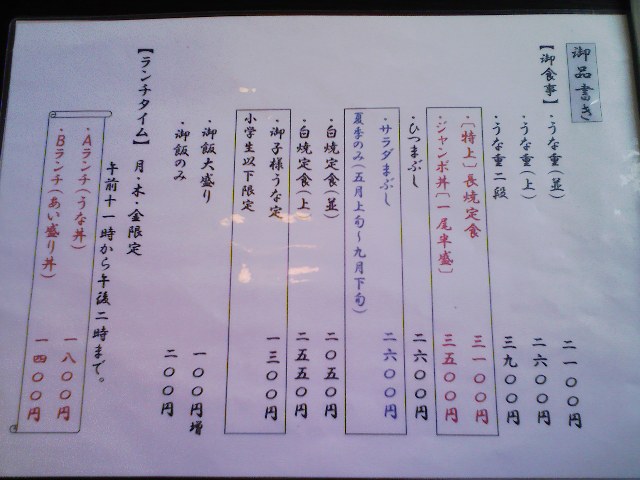 御品書き
【御食事】
・うな重(並) 二一〇〇円
・うな重(上) 二六〇〇円
・うな重二段 三九〇〇円
〔特上〕長焼定食 三一〇〇円
・ジャンボ丼〔一尾半盛〕 三五〇〇円
・ひつまぶし 二六〇〇円
・サラダまぶし 二六〇〇円
夏季のみ(五月上旬～九月下旬)
・白焼定食(並) 二〇五〇円
・白焼定食(上) 二五五〇円
・御子様うな定 一三〇〇円
小学生以下限定
・御飯大盛り 一〇〇円増
・御飯のみ 二〇〇円
【ランチタイム】 月・木・金限定
午前十一時から午後二時まで。
・Aランチ(うな丼) 一八〇〇円
・Bランチ(あい盛り丼) 一四〇〇円